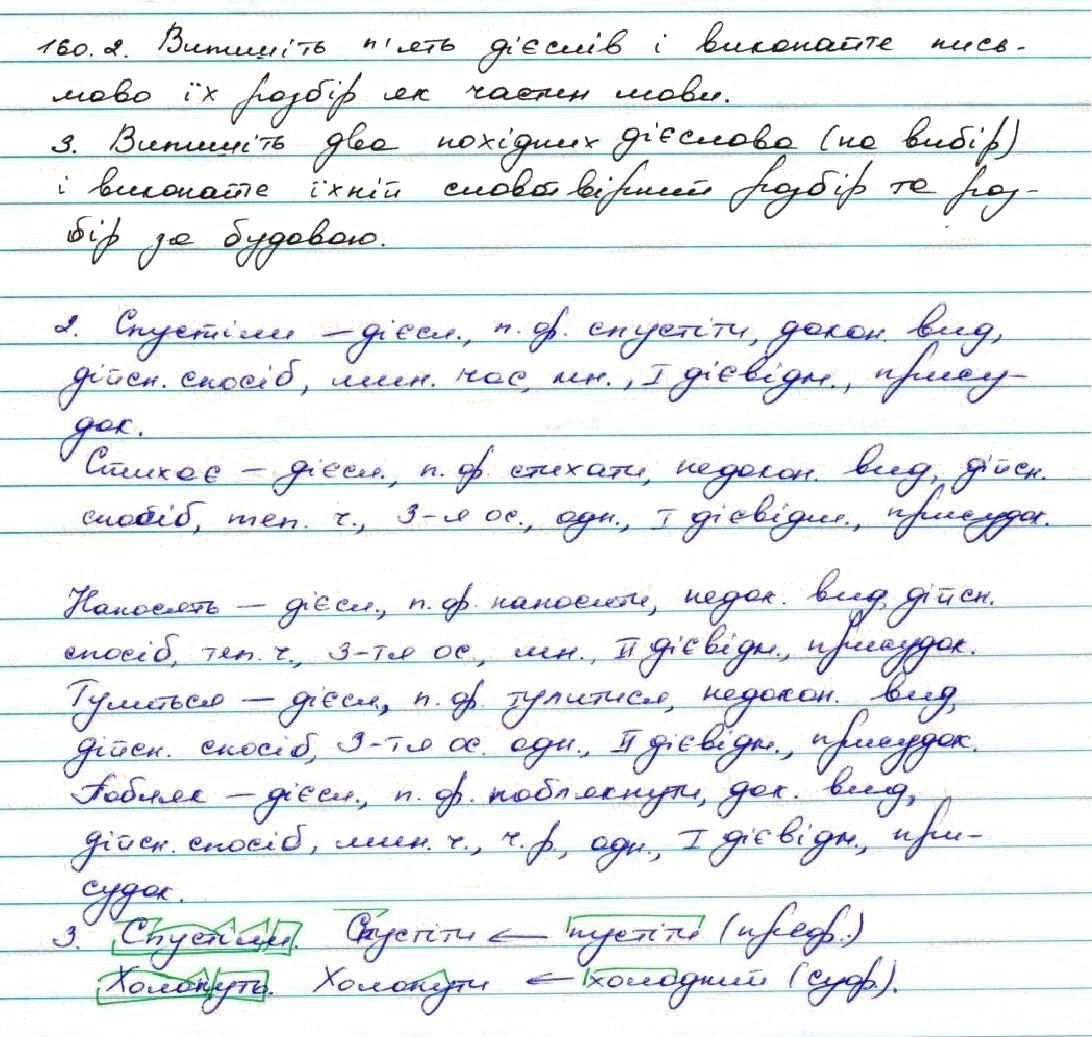 160.2. Випишіть п'ять дієслів і виконайте пись-
мово їх розбір як частин мови.
3. Випишіть два похідних дієслова (на вибір)
і виконате їхній словотвірний розбір та роз-
бір за будовою.
2. Спустіли – дієсл., п. ф. спустіти, докон. вид,
дійсн. спосіб, мин. час, мн., I дієвідм., прису-
док.
Стихає – дієсл., п. ф. стихати, недокон. вид, дійсн.
спосіб, теп. ч., 3-я ос., одн., I дієвідм., присудок.
Наносять – дієсл., п. ф. наносити, недок. вид, дійсн.
спосіб, теп. ч., 3-тя ос., мн., II дієвідм., присудок.
Тулиться – дієсл., п. ф. тулитися, недокон. вид,
дійсн. спосіб, 3-тя ос. одн., II дієвідм., присудок.
Побляк – дієсл., п. ф. поблякнути, док. вид,
дійсн. спосіб, мин. ч., ч. р., одн., I дієвідм., при-
судок.
3. Спустіли. Спустіти ← пустіти (преф.)
Холонуть. Холонути ← холодний (суф.).